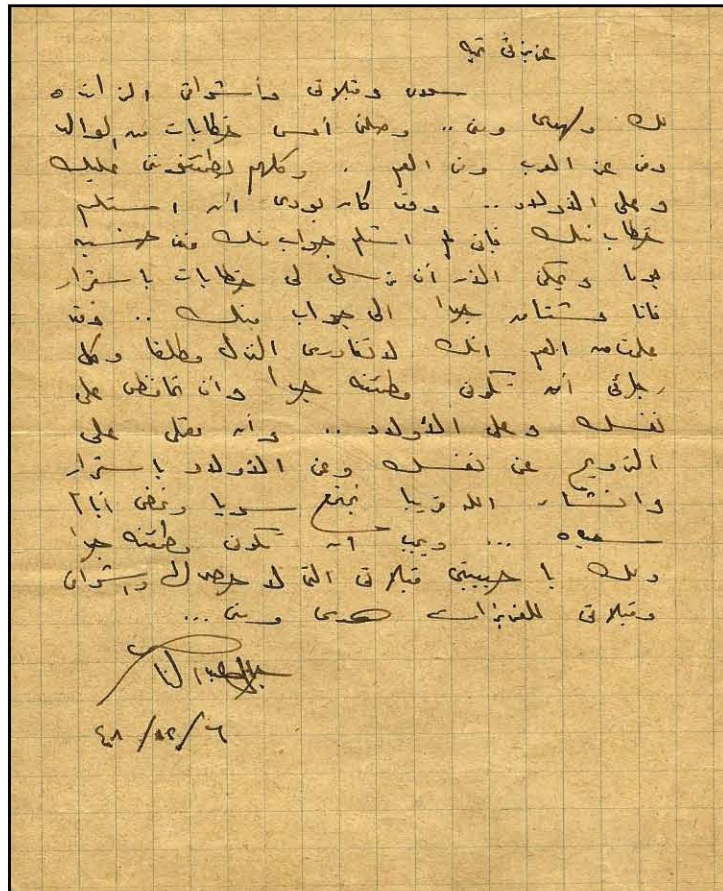 عزيزتى تحيه
سلامى وقبلاتى وأشواقى الزائده
لك ولهدى ومنى .. وصلنى أمس خطابات من الوالد
ومن عز العرب ومن العم . وكلهم يطمئنونى عليك
وعلى الأولاد .. وقد كان بودى أن استلم
خطاب منك فإن لم استلم جواب منك منذ خمسة
يوما ويمكن الآن أن ترسلى لى خطابات باستمرار
فأنا مشتاق جدا الى جواب منك .. وقد
علمت من العم انك لا تغادرى المنزل مطلقا وكل
رجائى أن تكونى مطمئنه جدا وأن تحافظى على
نفسك وعلى الأولاد .. وأن تعملى على
الترويح عن نفسك وعن الأولاد باستمرار
وانشاء الله قريبا نجتمع سويا ونمضى أياما
سعيده ... ويجب أن تكونى مطمئنه جدا
ولك يا حبيبتى قبلاتى التى لا حصر لها وأشواقى
وقبلاتى للعزيزات هدى ومنى ...
جمال عبد الناصر
٤٨/١٢/٦